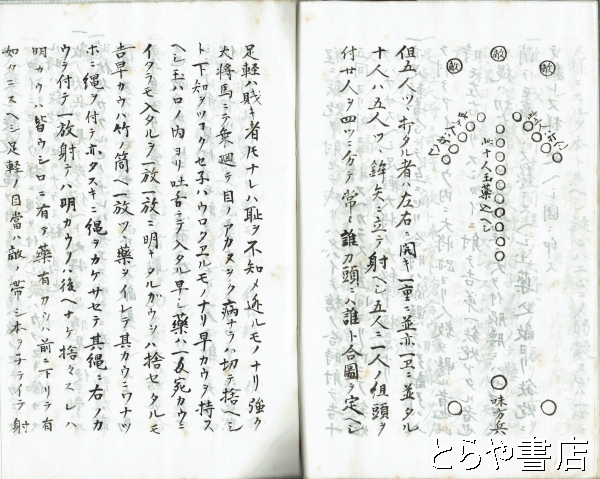 敵
敵
敵
此十人玉薬込ヘシ
味方兵
但五人ツヽ打タル者ハ左右ニ開キ一重ニ並亦一卫ニ並タル
十人ハ五人ツヽ鉾矢ニ立テ射ヘシ五人ニ一人ノ組頭ヲ
付廿人ヲ四ツニ分テ常ニ誰刀頭ニハ誰ト合圖ヲ定ヘシ
足軽ハ賤キ者ナレハ恥ヲ不知逃ルモノナリ強ク
大将馬ニテ乗廻テ目ノアカヌヲク病ナラハ切テ捨ヘシ
ト下知ヲツヨクセ子ハウロタユルモノナリ早カウヲ持ス
ヘシ玉ハロノ内ヨリ吐舌ニテ入タル早シ薬ハ一反死カウニ
イタラモ入タルヲ一放一放ニ明キタルガウシハ捨セタルモ
吉早カウハ竹ノ筒ヘ一放ツヽ薬ヲイレテ其カウニワナツ
ホニ縄ヲ付テ亦タスキニ縄ヲカケサセテ其縄ニ右ノカ
ウヲ付テ一放射テハ明カウヲハ後ヘナケ捨々スレハ
明カウハ皆ウシロニ有タ薬有カウハ前ニ下リテ有
如クニスヘシ足軽ノ目當ハ敵ノ帯シ本ヲ子ライテ射
とらや書店